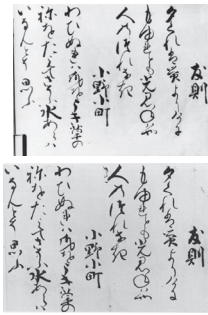 友則
夕されは螢よりけに
もゆれとも光みねはや
人のつれなき
小野小町
わひぬれは身をうき草の
ねをたえてさそふ水あらは
いなんとそ思ふ
友則
夕されは螢よりけに
もゆれとも光みねはや
人のつれなき
小野小町
わひぬれは身をうき草の
ねをたえてさそふ水あらは
いなんとそ思ふ